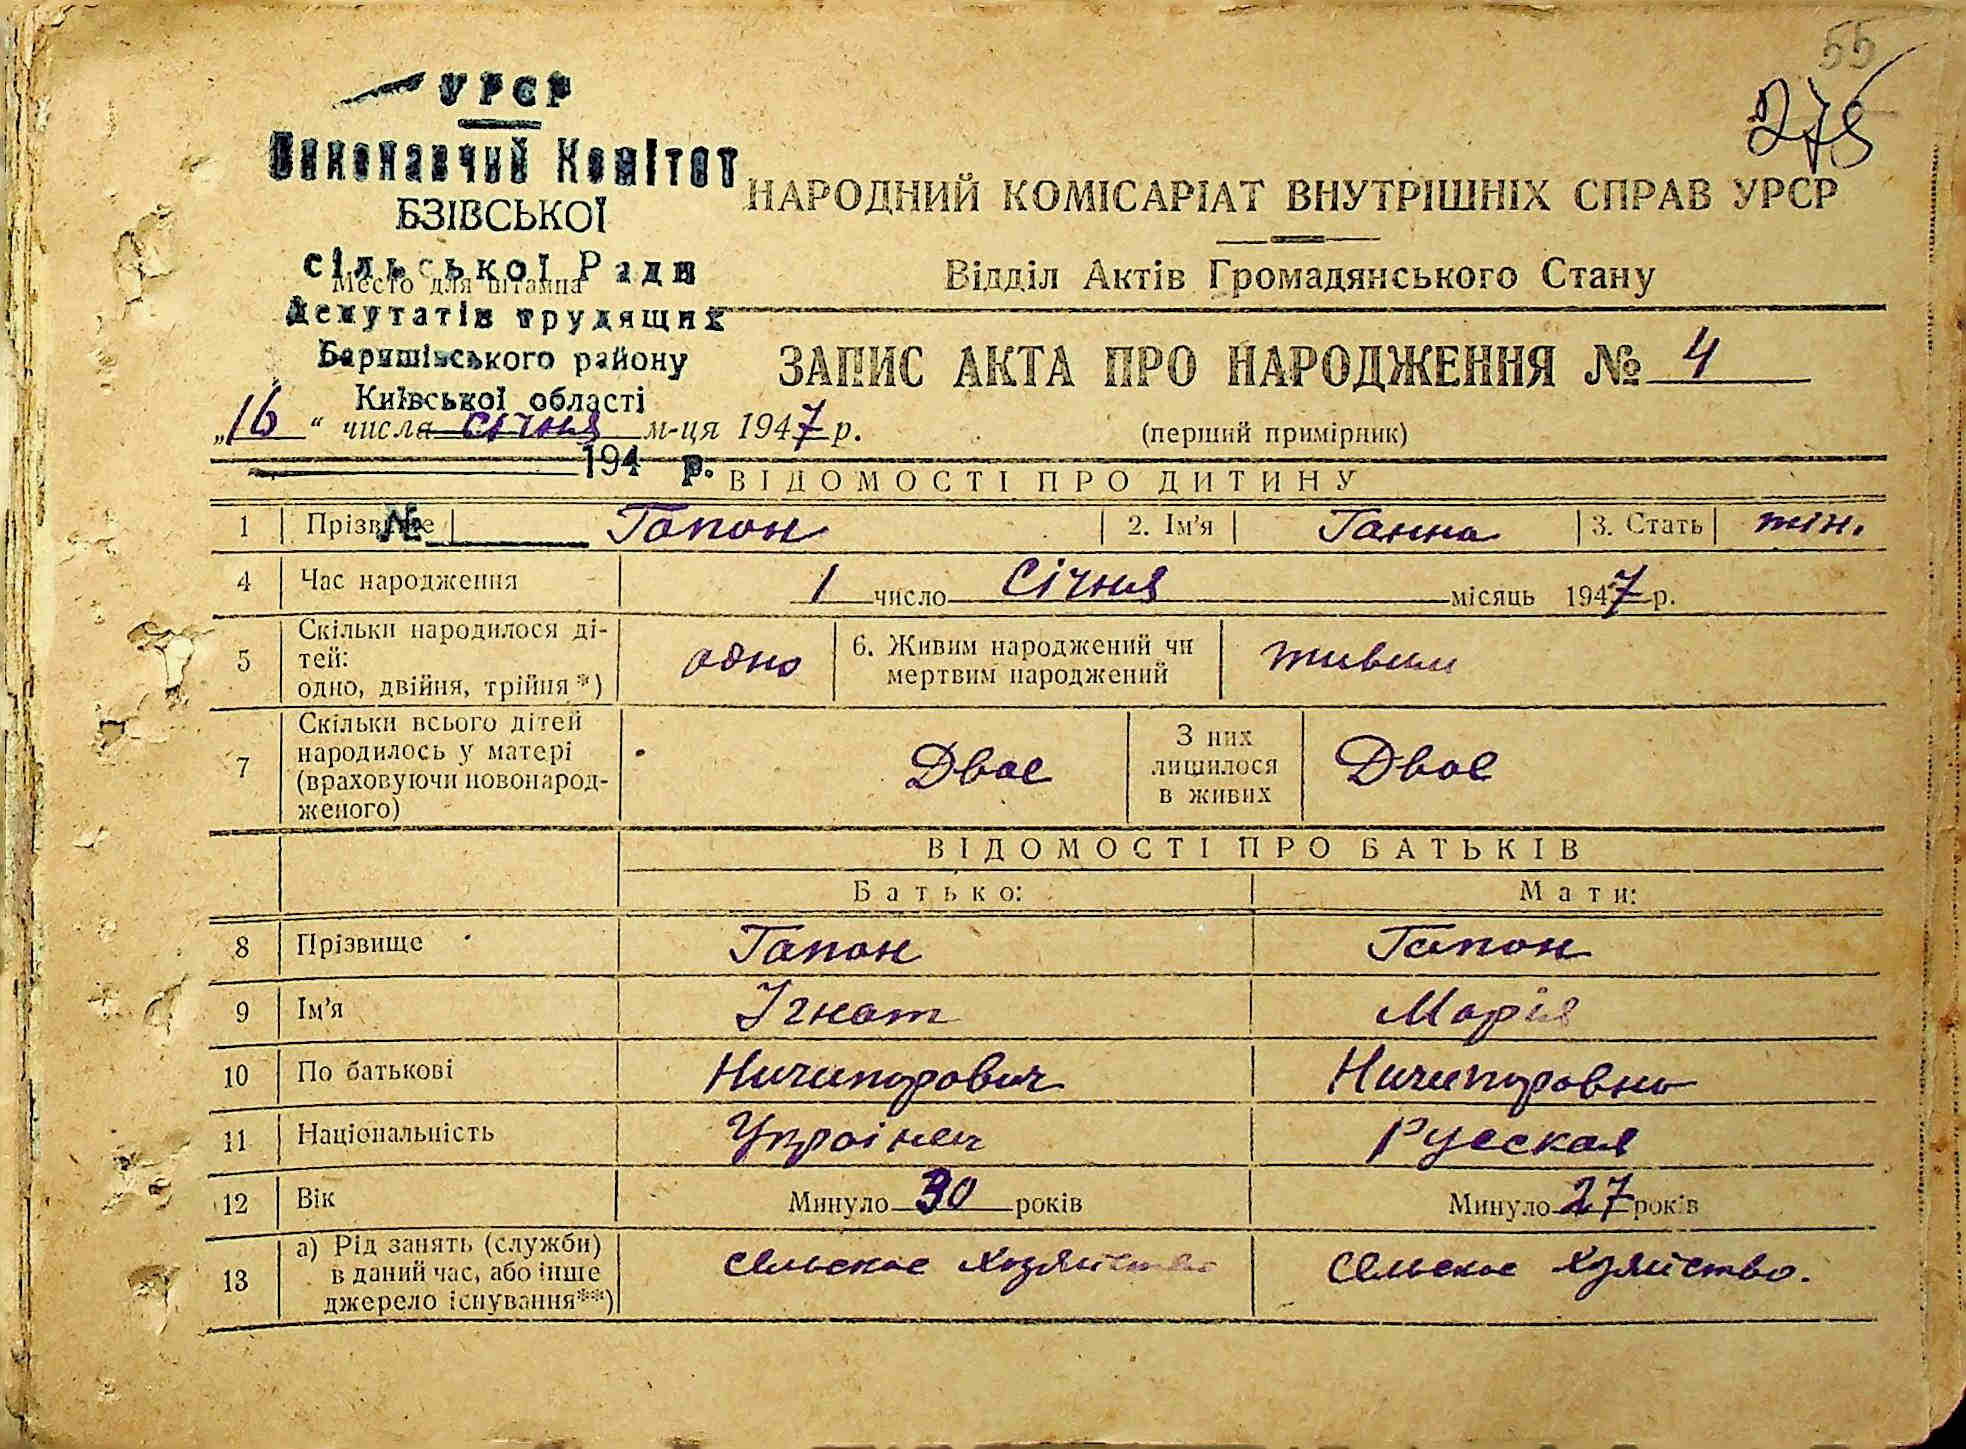 55
275
УРСР
Виконавчий Комітет
БЗІВСЬКОЇ
сільської Ради
Место для штампа
Депутатів трудящих
Баришівського району
Київської області
194 р.
№
НАРОДНИЙ КОМІСАРІАТ ВНУТРІШНІХ СПРАВ УРСР
Відділ Актів Громадянського Стану
ЗАПИС АКТА ПРО НАРОДЖЕННЯ № 4
„16“ числа січня м-ця 1947 р.
(перший примірник)
ВІДОМОСТІ ПРО ДИТИНУ
1 Прізвище Гапон 2. Ім’я Ганна 3. Стать жін.
4 Час народження 1 число Січня місяць 1947 р.
5 Скільки народилося ді-
тей:
одно, двійня, трійня*) одно 6. Живим народжений чи
мертвим народжений живим
7 Скільки всього дітей
народилось у матері
(враховуючи новонарод-
женого) Двоє З них
лишилося
в живих Двоє
ВІДОМОСТІ ПРО БАТЬКІВ
Батько: Мати:
8 Прізвище Гапон Гапон
9 Ім’я Ігнат Марія
10 По батькові Ничипорович Ничипоровна
11 Національність Українец Русская
12 Вік Минуло 30 років Минуло 27 років
13 а) Рід занять (служби)
в даний час, або інше
джерело існування**) сельское хозяйство сельское хозяйство.